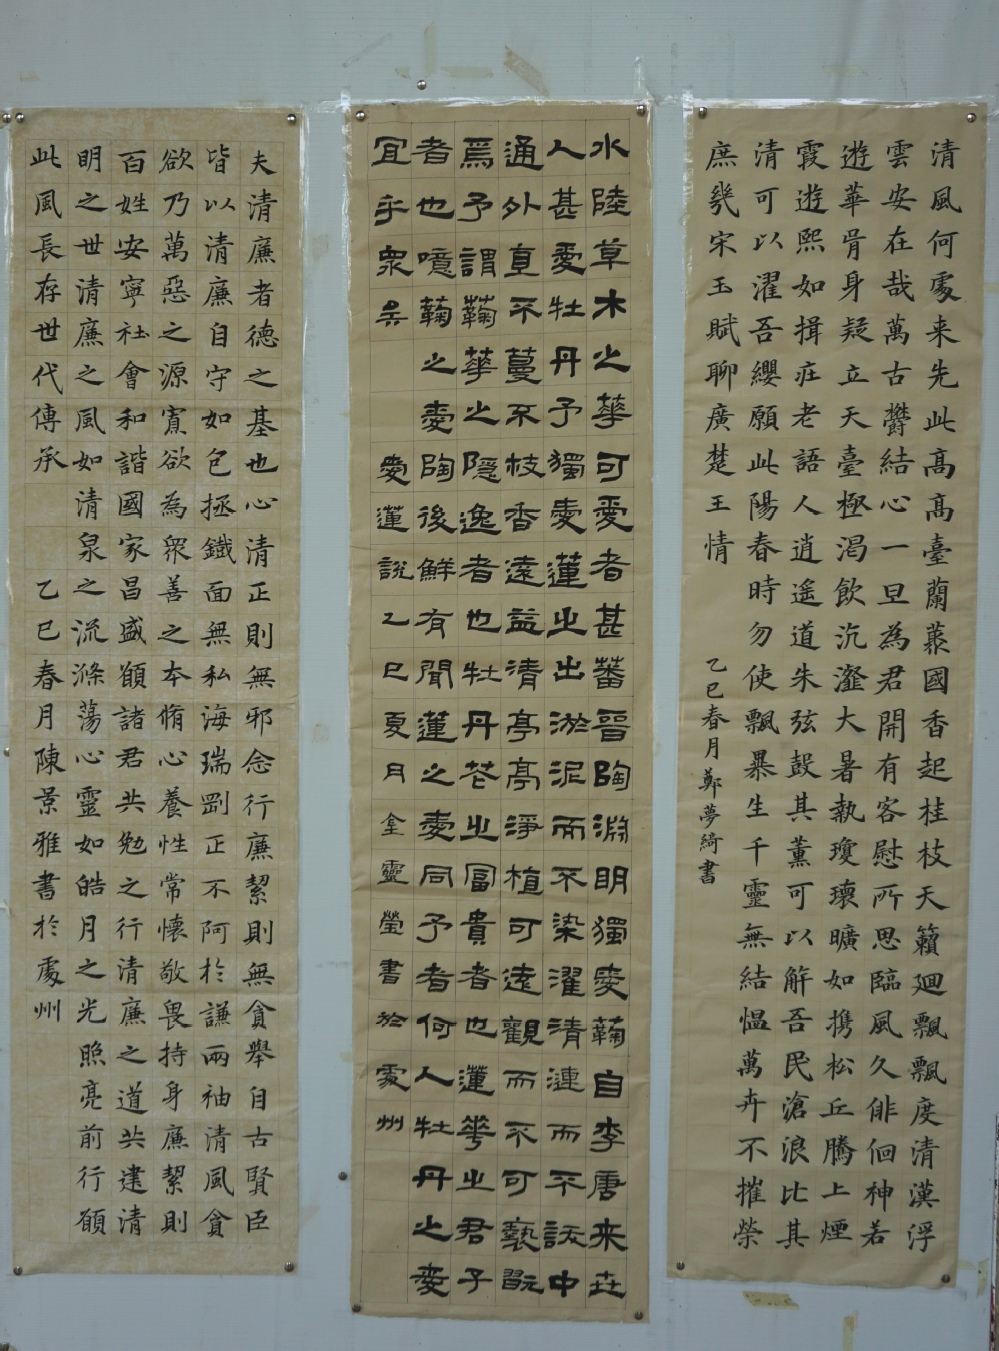 清風何處来先此高高臺蘭藂國香起桂枝天籟廻飄飄度清漢浮
雲安在哉萬古欝結心一旦為君開有客慰所思臨風久俳佪神若
遊華骨身疑立天臺極渴飲沆瀣大暑執瓊瓌曠如携松丘騰上煙
霞遊熙如揖庄老語人逍遥道朱弦鼓其薫可以解吾民滄浪比其
清可以濯吾纓願此陽春時勿使飄暴生千靈無結愠萬卉不摧榮
庶幾宋玉賦聊廣楚王情
乙巳春月鄭夢綺書
水陸草木之華可愛者甚蕃晉陶淵明獨愛菊自李唐来世
人甚愛牡丹予獨愛蓮之出淤泥而不染濯清漣而不訞中
通外直不蔓不枝香遠益清亭亭淨植可遠觀而不可褻翫
焉予謂菊華之隱逸者也牡丹花之冨貴者也蓮華之君子
者也噫菊之愛陶後鮮有聞蓮之愛同予者何人牡丹之愛
宜乎衆矣
愛蓮說乙巳夏月金靈瑩書於處州
夫清廉者德之基也心清正則無邪念行廉絜則無貪舉自古賢臣
皆以清廉自守如包拯鐵面無私海瑞剛正不阿於謙兩袖清風貪
欲乃萬惡之源寡欲為衆善之本脩心養性常懷敬畏持身廉絜則
百姓安寧社會和諧國家昌盛願諸君共勉之行清廉之道共建清
明之世清廉之風如清泉之流滌蕩心靈如皓月之光照亮前行願
此風長存世代傳承
乙巳春月陳景雅書於處州